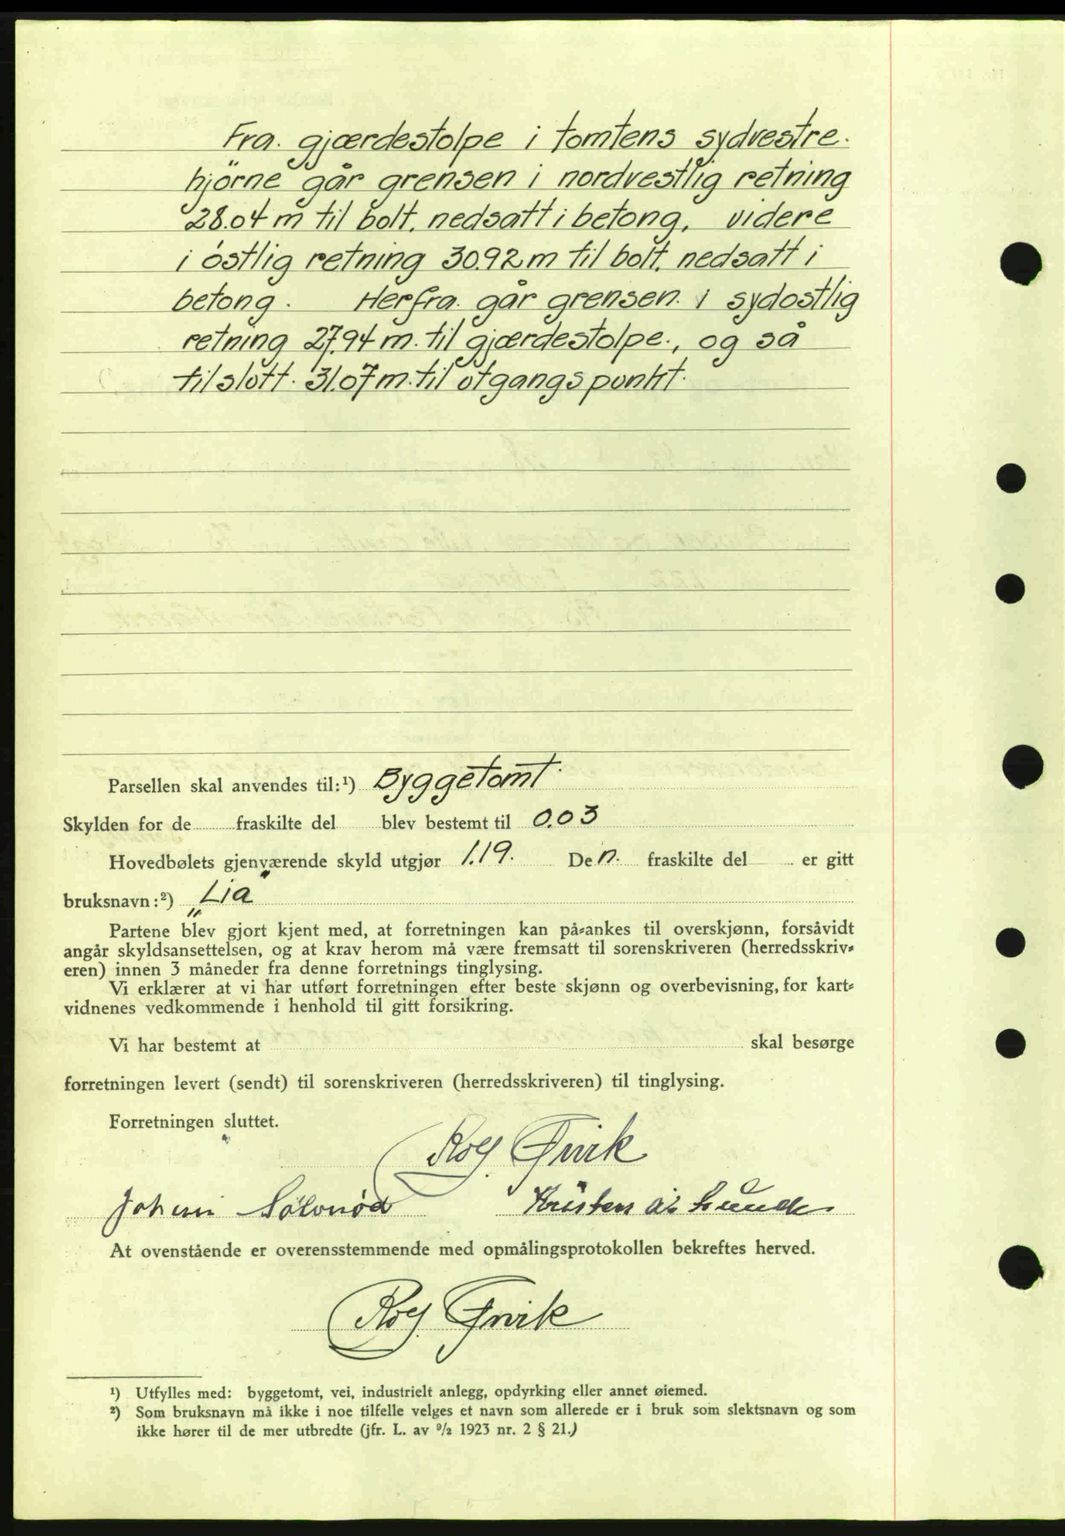 Fra. gjærdestolpe i tomtens sydvestre.
hjörne går grensen i nordvestlig retning
28.04 m til bolt, nedsatt i betong, videre
i östlig retning 30.92 m til bolt, nedsatt i
betong. Herfra går grensen i sydostlig
retning 27.94 m. til gjærdestolpe, og så
til slutt 31.07 m. til utgangspunkt.
Parsellen skal anvendes til:¹) Byggetomt.
Skylden for de fraskilte del blev bestemt til 0.03
Hovedbølets gjenværende skyld utgjør 1.19. Den. fraskilte del er gitt
bruksnavn:²) „Lia"
Partene blev gjort kjent med, at forretningen kan på=ankes til overskjønn, forsåvidt
angår skyldsansettelsen, og at krav herom må være fremsatt til sorenskriveren (herredsskriv=
eren) innen 3 måneder fra denne forretnings tinglysing.
Vi erklærer at vi har utført forretningen efter beste skjønn og overbevisning, for kart=
vidnenes vedkommende i henhold til gitt forsikring.
Vi har bestemt at skal besørge
forretningen levert (sendt) til sorenskriveren (herredsskriveren) til tinglysing.
Forretningen sluttet.
Rolf
Johan Kristen Lunde
At ovenstående er overensstemmende med opmålingsprotokollen bekreftes herved.
Rolf
¹) Utfylles med: byggetomt, vei, industrielt anlegg, opdyrking eller annet øiemed.
²) Som bruksnavn må ikke i noe tilfelle velges et navn som allerede er i bruk som slektsnavn og som
ikke hører til de mer utbredte (jfr. L. av ⁹/₂ 1923 nr. 2 § 21.)